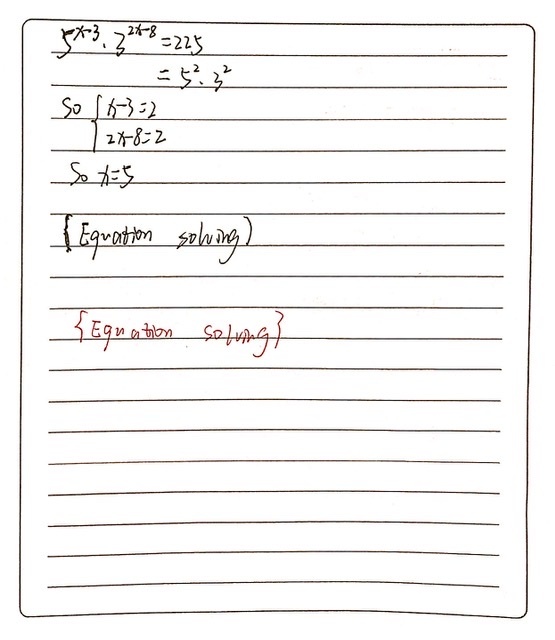 5^{x-3} · 3^{2x-8} = 225
= 5^2 · 3^2
So { x-3=2
2x-8=2
So x=5
(Equation solving)
{Equation solving}